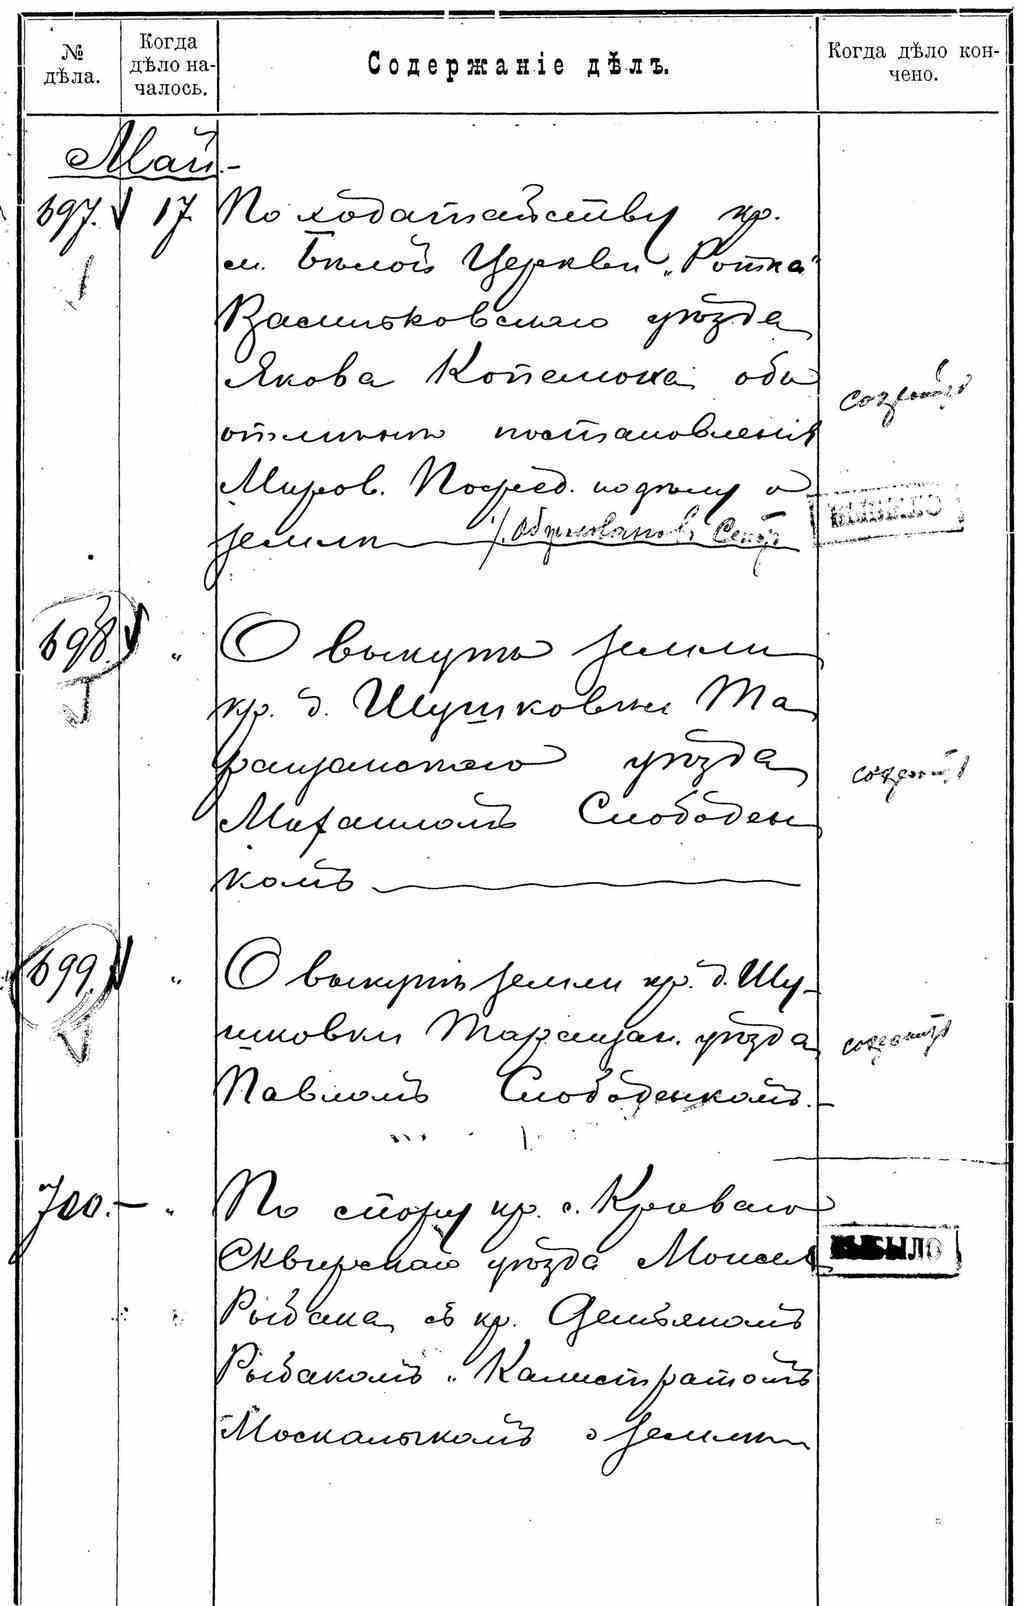 № дѣла.
Когда дѣло на-
чалось.
Содержаніе дѣлъ.
Когда дѣло кон-
чено.
Май.-
697. 17. По ходатайству кр.
м. Бѣлой Церкви „Ротка"
Васильковскаго уѣзда
Якова Копелюка объ
отмѣнѣ постановленія
Миров. Посред. по дѣлу о
землѣ
698 " О выкупѣ земли
кр. д. Шушковки Та
ращанскаго уѣзда
Михаиломъ Слободен
комъ
699. " О выкупѣ земли кр. д. Шу-
шковки Таращан. уѣзда
Павломъ Слободенкомъ.-
700.- " По спору кр. с. Криваго
Сквирскаго уѣзда Моисея
ВЫБЫЛО
Рыбака съ кр. Демьяномъ
Рыбакомъ и Калистратомъ
Москалькомъ о землѣ